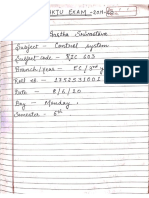 AKTU EXAM - 2019-20
Aastha Srivastava
Subject - Control system
Subject code - KIC 603
Branch/year - EC/3rd year
Roll no - 1752531001
Date - 8/6/20
Day - Monday
Semester - 6th